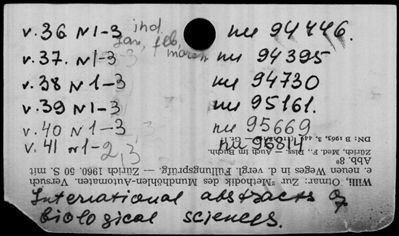 v. 36 N 1-3 ind. nu 94446.
Jan, feb, march
v. 37. N 1-3 nu 94395
v. 38 N 1-3 nu 94730
v. 39 N 1-3 nu 95161.
v. 40 N 1-3 nu 95669
v. 41 N 1-2,3 nu 96814
International abstracts of
biological sciences.
Willi, Omar: Zur Methodik des Mundhöhlen-Automaten. Versuch
e. neuen Weges in d. vergl. Füllungsprüfg. — Zürich 1960. 50 S. mit
Abb. 8°
Zürich, Med. F., Diss. — Auch im Buchh.